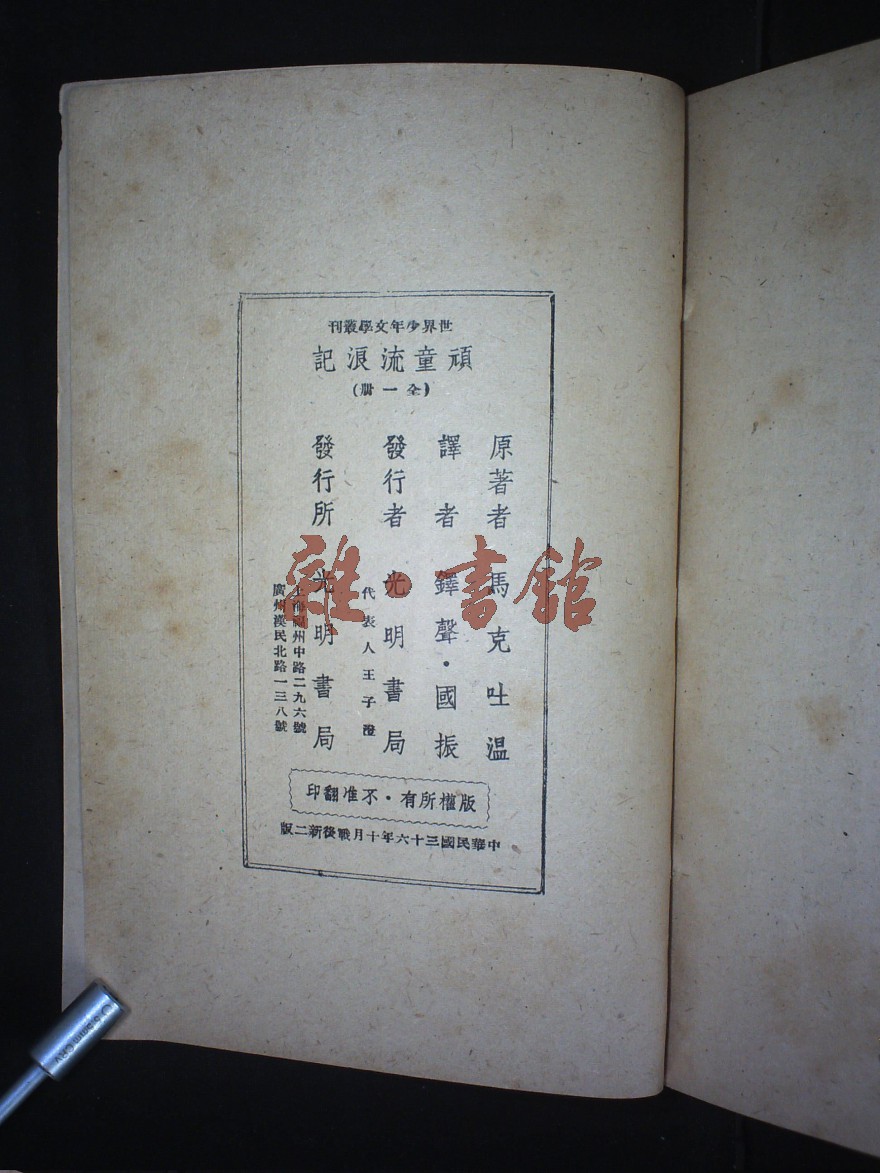 世界少年文學叢刊
頑童流浪記
(全一冊)
原著者 馬克吐温
譯者 鐸聲·國振
發行者 光明書局
代表人王子澄
發行所 光明書局
上海福州中路二九六號
廣州漢民北路一三八號
版權所有·不准翻印
中華民國三十六年十月戰後新二版
雜·書館